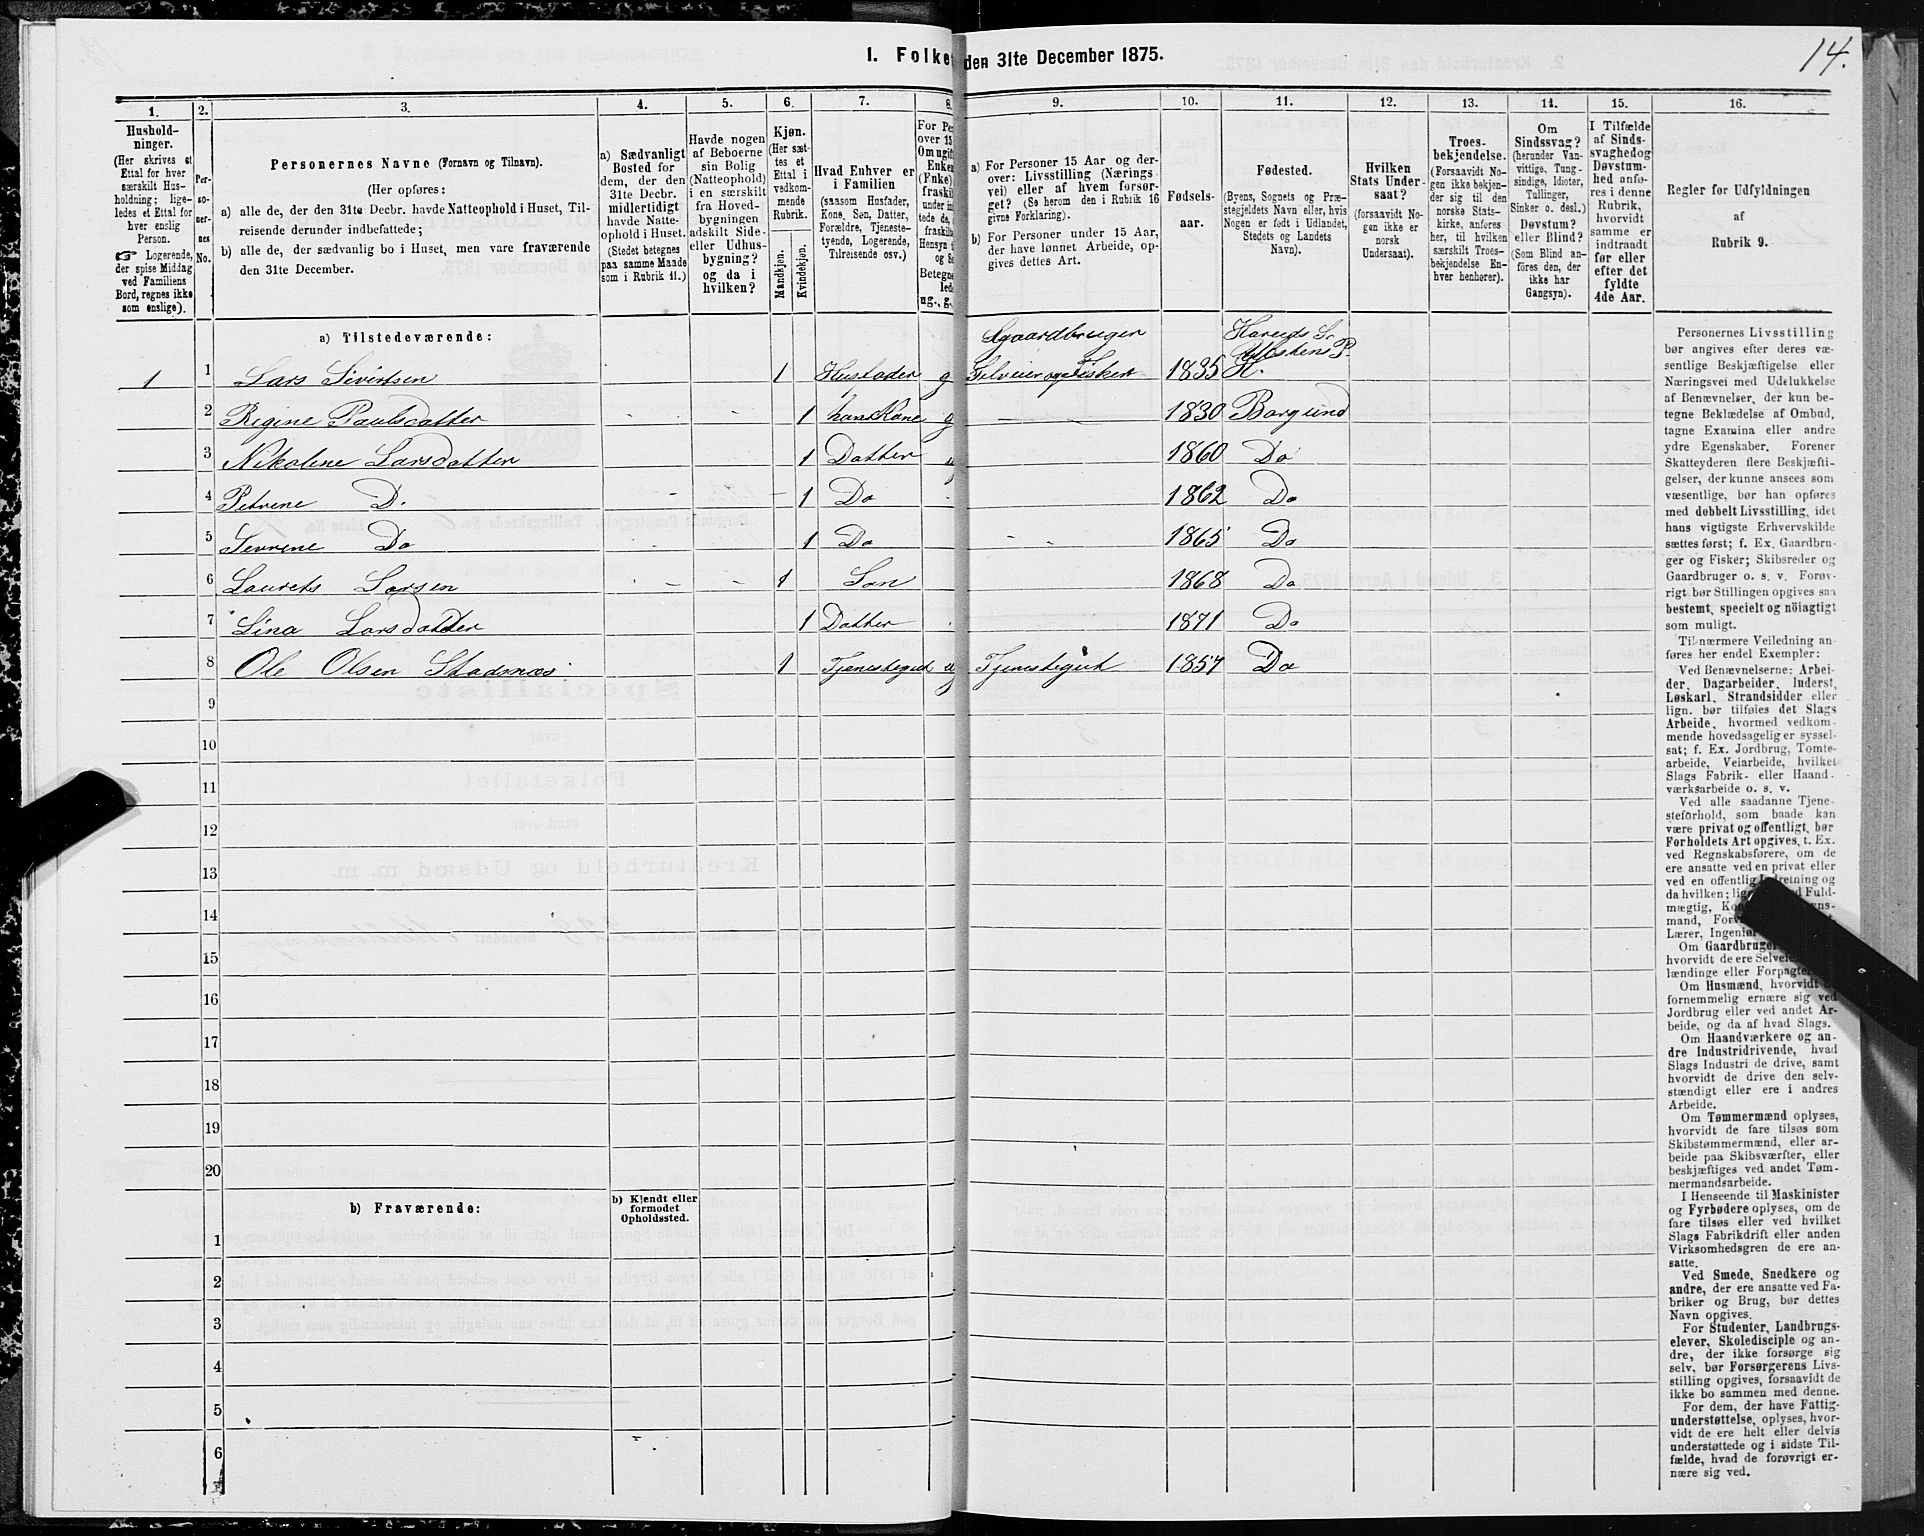 1. Folket den 31te December 1875.
14.
1. 2. 3. 4. 5. 6. 7. 8. 9. 10. 11. 12. 13. 14. 15. 16.
Hushold-
ninger.
(Her skrives et
Ettal for hver
særskilt Hus-
holdning; lige-
ledes et Ettal for
hver enslig
Person.
☞ Logerende,
der spise Middag
ved Familiens
Bord, regnes ikke
som enslige).
Per-
so-
ner-
nes
No.
Personernes Navne (Fornavn og Tilnavn).
(Her opføres:
a) alle de, der den 31te Decbr. havde Natteophold i Huset, Til-
reisende derunder indbefattede;
b) alle de, der sædvanlig bo i Huset, men vare fraværende
den 31te December.
a) Sædvanligt
Bosted for
dem, der den
31te Decbr.
midlertidigt
havde Natte-
ophold i Huset.
(Stedet betegnes
paa samme Maade
som i Rubrik 11.)
Havde nogen
af Beboerne
sin Bolig
(Natteophold)
i en særskilt
fra Hoved-
bygningen
adskilt Side-
eller Udhus-
bygning?
og da i
hvilken?
Kjøn.
(Her sæt-
tes et
Ettal i
vedkom-
mende
Rubrik.
Mandkjøn.
Kvindekjøn.
Hvad Enhver er
i Familien
(saasom Husfader,
Kone, Søn, Datter,
Forældre, Tjeneste-
tyende, Logerende,
Tilreisende osv.)
For Per
over 15
Om ugift
Enken
(Fnke)
fraskil
under in
tede de,
fraskilt
Hensyn
og S
Betegne
lede
ug., g.,
a) For Personer 15 Aar og der-
over: Livsstilling (Nærings-
vei) eller af hvem forsør-
get? (Se herom den i Rubrik 16
givne Forklaring).
b) For Personer under 15 Aar,
der have lønnet Arbeide, op-
gives dettes Art.
Fødsels-
aar.
Fødested.
(Byens, Sognets og Præ-
stegjeldets Navn eller, hvis
Nogen er født i Udlandet,
Stedets og Landets
Navn).
Hvilken
Stats Under-
saat?
(forsaavidt No-
gen ikke er
norsk
Undersaat).
Troes-
bekjendelse.
(Forsaavidt No-
gen ikke bekjen-
der sig til den
norske Stats-
kirke, anføres
her, til hvilken
særskilt Troes-
bekjendelse En-
hver henhører).
Om
Sindssvag?
(herunder Van-
vittige, Tung-
sindige, Idioter,
Tullinger,
Sinker o. desl.)
Døvstum?
eller Blind?
(Som Blind an-
føres den, der
ikke har
Gangsyn).
I Tilfælde
af Sinds-
svaghed og
Døvstum-
hed anfø-
res i denne
Rubrik,
hvorvidt
samme er
indtraadt
før eller
efter det
fyldte
4de Aar.
Regler for Udfyldningen
af
Rubrik 9.
a) Tilstedeværende:
Gaardbruger Hareids S.
Ulstens P.
1 1 Lars Sivertsen 1 Husfader g Selveier og Fisker 1835 H.
2 Regine Paulsdatter 1 hans Kone g 1830 Borgund
3 Nikoline Larsdatter 1 Datter u 1860 Do
4 Petrine D. 1 Do 1862 Do
5 Severine Do 1 Do 1865 Do
6 Laurets Larsen 1 Søn 1868 Do
7 Lina Larsdatter 1 Datter 1871 Do
8 Ole Olsen Stadsnæs 1 Tjenestegut ug Tjenestegut 1857 Do
9
10
11
12
13
14
15
16
17
18
19
20
b) Fraværende:
b) Kjendt eller
formodet
Opholdssted.
1
2
3
4
5
6
Personernes Livsstilling
bør angives efter deres væ-
sentlige Beskjæftigelse eller
Næringsvei med Udelukkelse
af Benævnelser, der kun be-
tegne Beklædelse af Ombud,
tagne Examina eller andre
ydre Egenskaber. Forener
Skatteyderen flere Beskjæfti-
gelser, der kunne ansees som
væsentlige, bør han opføres
med dobbelt Livsstilling, idet
hans vigtigste Erhvervskilde
sættes først; f. Ex. Gaardbru-
ger og Fisker; Skibsreder og
Gaardbruger o. s. v. Forøv-
rigt bør Stillingen opgives saa
bestemt, specielt og nöiagtigt
som muligt.
Til nærmere Veiledning an-
føres her endel Exempler:
Ved Benævnelserne: Arbei-
der, Dagarbeider, Inderst,
Løskarl, Strandsidder eller
lign. bør tilføies det Slags
Arbeide, hvormed vedkom-
mende hovedsagelig er syssel-
sat; f. Ex. Jordbrug, Tomte-
arbeide, Veiarbeide, hvilket
Slags Fabrik- eller Haand-
værksarbeide o. s. v.
Ved alle saadanne Tjene-
steforhold, som baade kan
være privat og offentligt, bør
Forholdets Art opgives, t. Ex.
ved Regnskabsførere, om de
ere ansatte ved en privat eller
ved en offentlig Indretning og
da hvilken; lig d Fuld-
mægtig, Ko ns-
mand, Forv
Lærer, Ingeniør
Om Gaardbruger
hvorvidt de ere Selveie
lændinge eller Forpagte
Om Husmænd, hvorvidt
fornemmelig ernære sig ved
Jordbrug eller ved andet Ar-
beide, og da af hvad Slags.
Om Haandværkere og an-
dre Industridrivende, hvad
Slags Industri de drive, samt
hvorvidt de drive den selv-
stændigt eller ere i andres
Arbeide.
Om Tømmermænd oplyses,
hvorvidt de fare tilsøs som
Skibstømmermænd, eller ar-
beide paa Skibsværfter, eller
beskjæftiges ved andet Tøm-
mermandsarbeide.
I Henseende til Maskinister
og Fyrbødere oplyses, om de
fare tilsøs eller ved hvilket
Slags Fabrikdrift eller anden
Virksomhedsgren de ere an-
satte.
Ved Smede, Snedkere og
andre, der ere ansatte ved Fa-
briker og Brug, bør dettes
Navn opgives.
For Studenter, Landbrugs-
elever, Skoledisciple og an-
dre, der ikke forsørge sig
selv, bør Forsørgerens Livs-
stilling opgives, forsaavidt de
ikke bo sammen med denne.
For dem, der have Fattig-
understøttelse, oplyses, hvor-
vidt de ere helt eller delvis
understøttede og i sidste Til-
fælde, hvad de forøvrigt er-
nære sig ved.